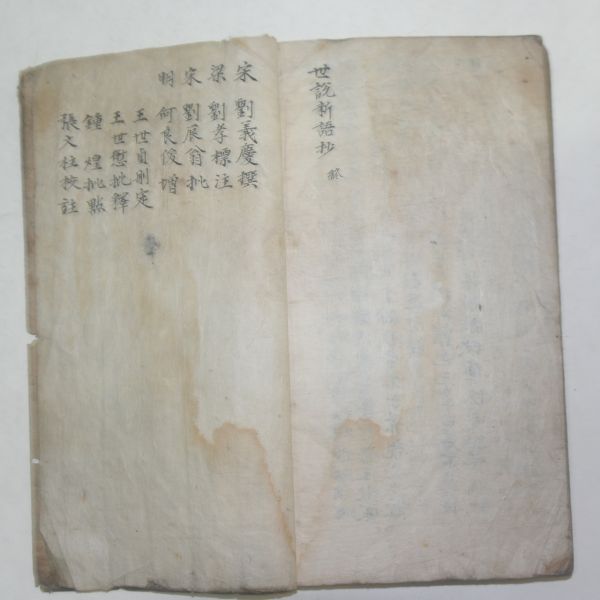 世說新語抄
宋 劉義慶撰
梁 劉孝標注
宋 劉辰翁批
明 何良俊增
王世貞刪定
王世懋批釋
鍾惺批點
張文柱按註